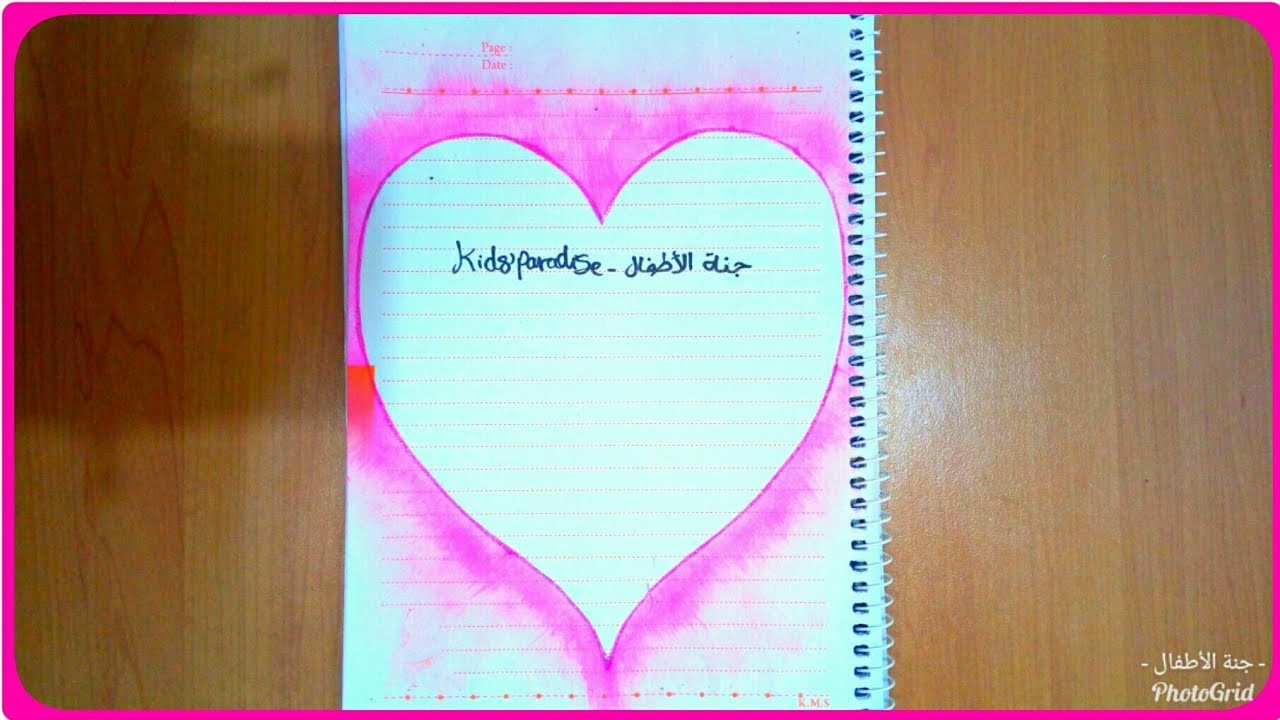 Page :
Date :
Kids' paradise - جنة الأطفال
K.M.S
- جنة الأطفال -
PhotoGrid